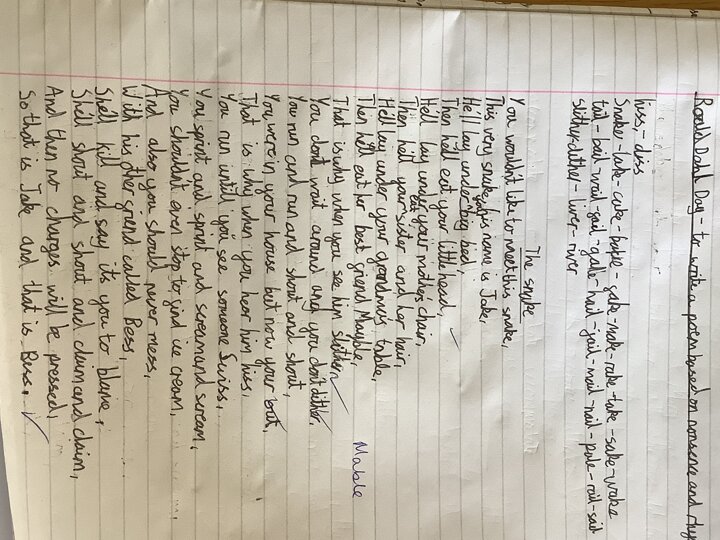 Roald Dahl Day - to write a poem based on nonsense and rhy
hiss, - diss
Snake - lake - cake - bake - fake - make - rake - take - sake - wake
tail - bail - wail - fail - gale - hail - jail - mail - nail - pale - rail - sail
slither - dither - liver - river
The snake
You wouldn't like to meet this snake,
This very snake his name is Jake,
He'll lay under your big bed,
Then he'll eat your little head,
He'll lay under your mother's chair,
Then he'll eat your sister and her hair,
He'll lay under your grandma's table,
Then he'll eat her best friend Mayble,
Mable
That is why when you see him slither,
You don't wait around and you don't dither,
You run and run and shout and shout,
You were in your house but now your out,
That is why when you hear him hiss,
You run until you see someone Swiss,
You sprint and sprint and scream and scream,
You shouldn't even stop to find ice cream,
And also you should never mess,
With his other friend called Bess,
She'll kill and say it's you to blame,
She'll shout and shout and claim and claim,
And then no charges will be pressed,
So that is Jake and that is Bess.